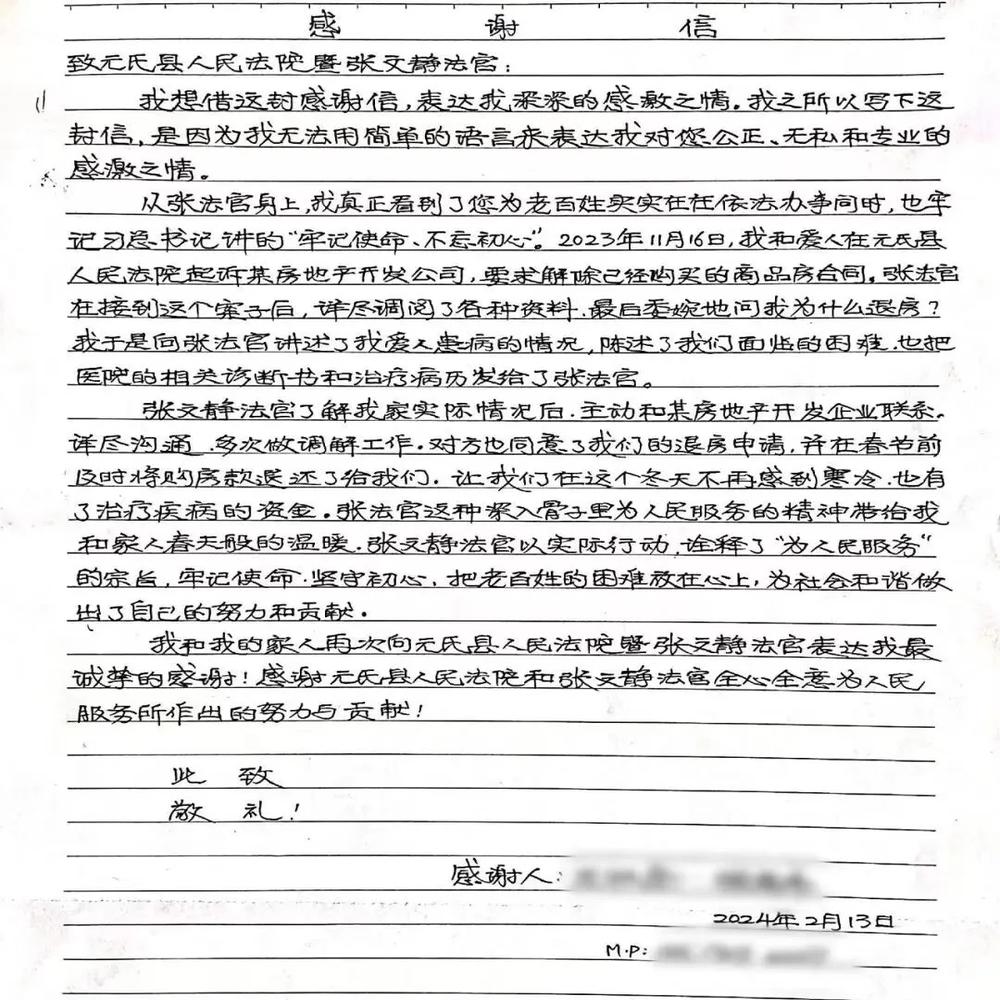 感 谢 信
致元氏县人民法院暨张文静法官:
我想借这封感谢信,表达我深深的感激之情。我之所以写下这
封信,是因为我无法用简单的语言来表达我对您公正、无私和专业的
感激之情。
从张法官身上,我真正看到了您为老百姓实实在在依法办事同时,也牢
记习总书记讲的“牢记使命、不忘初心”。2023年11月16日,我和爱人在元氏县
人民法院起诉某房地产开发公司,要求解除已经购买的商品房合同。张法官
在接到这个案子后,详尽调阅了各种资料.最后委婉地问我为什么退房?
我于是向张法官讲述了我爱人患病的情况,陈述了我们面临的困难.也把
医院的相关诊断书和治疗病历发给了张法官。
张文静法官了解我家实际情况后.主动和某房地产开发企业联系.
详尽沟通.多次做调解工作.对方也同意了我们的退房申请,并在春节前
及时将购房款退还了给我们.让我们在这个冬天不再感到寒冷.也有
了治疗疾病的资金.张法官这种深入骨子里为人民服务的精神带给我
和家人春天般的温暖.张文静法官以实际行动,诠释了“为人民服务”
的宗旨,牢记使命.坚守初心,把老百姓的困难放在心上,为社会和谐做
出了自己的努力和贡献.
我和我的家人再次向元氏县人民法院暨张文静法官表达我最
诚挚的感谢!感谢元氏县人民法院和张文静法官全心全意为人民
服务所作出的努力与贡献!
此 致
敬 礼!
感谢人:
2024年2月13日
M.P: